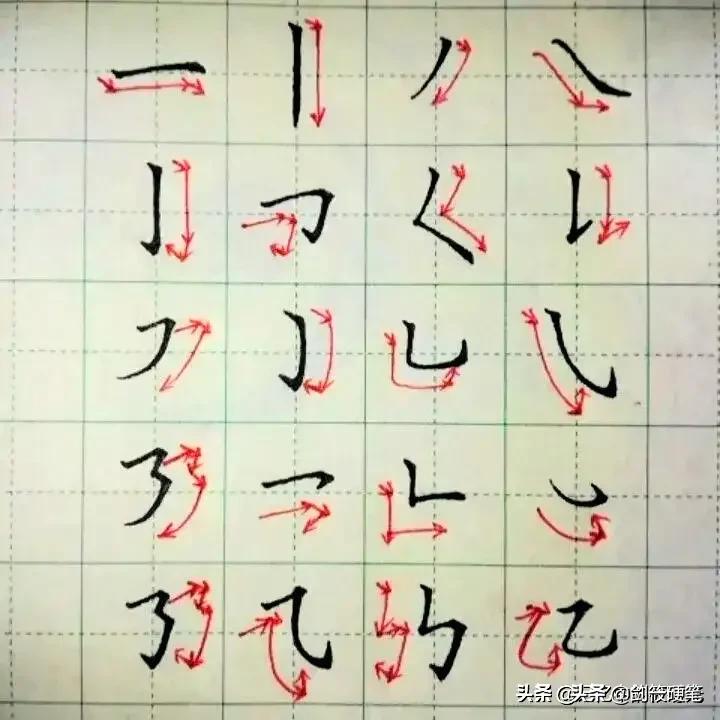 一 丨 丿 ㇏
亅 𠃌 𡿨 𠄌
㇇ ㇁ ㇄ ㇂
㇋ 乛 𠃊 ㇃
㇌ ⺄ ㇉ 乙
头条 @头条 @剑筱硬笔